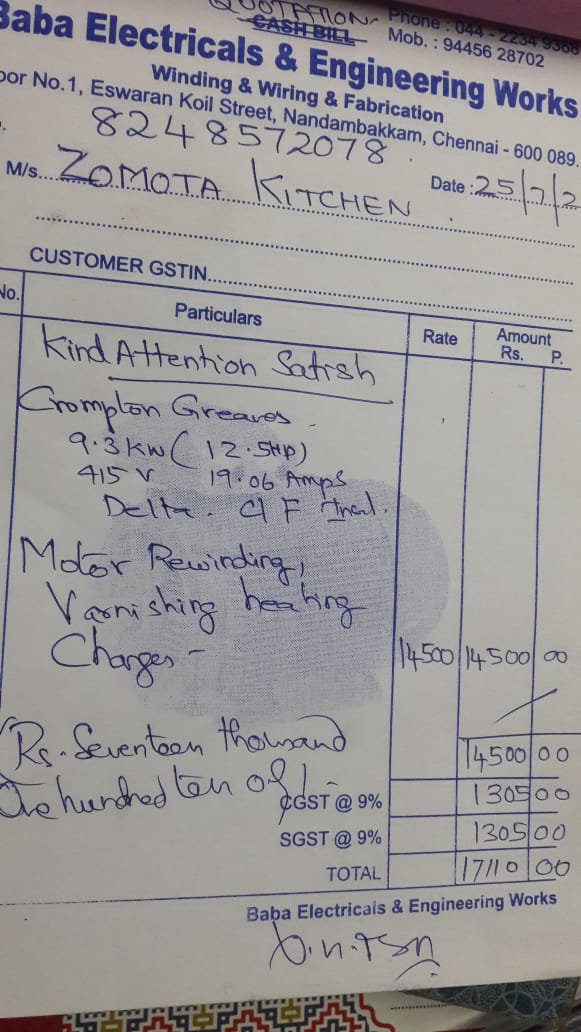 QUOTATION
CASH BILL
Phone : 044 - 2234 9366
Mob. : 94456 28702
Baba Electricals & Engineering Works
Winding & Wiring & Fabrication
oor No.1, Eswaran Koil Street, Nandambakkam, Chennai - 600 089.
8248572078
M/s. ZOMOTA KITCHEN
Date : 25/7/2
CUSTOMER GSTIN
No. Particulars Rate Amount
Rs. P.
Kind Attention Satish
Crompton Greaves
9.3 KW ( 12.5HP)
415 V 19.06 Amps
Delta. Cl F Insul.
Motor Rewinding,
Varnishing heating
Charges - 14500 14500 00
Rs. Seventeen thousand 14500 00
One hundred ten
CGST @ 9% 1305 00
SGST @ 9% 1305 00
TOTAL 17110 00
Baba Electricals & Engineering Works